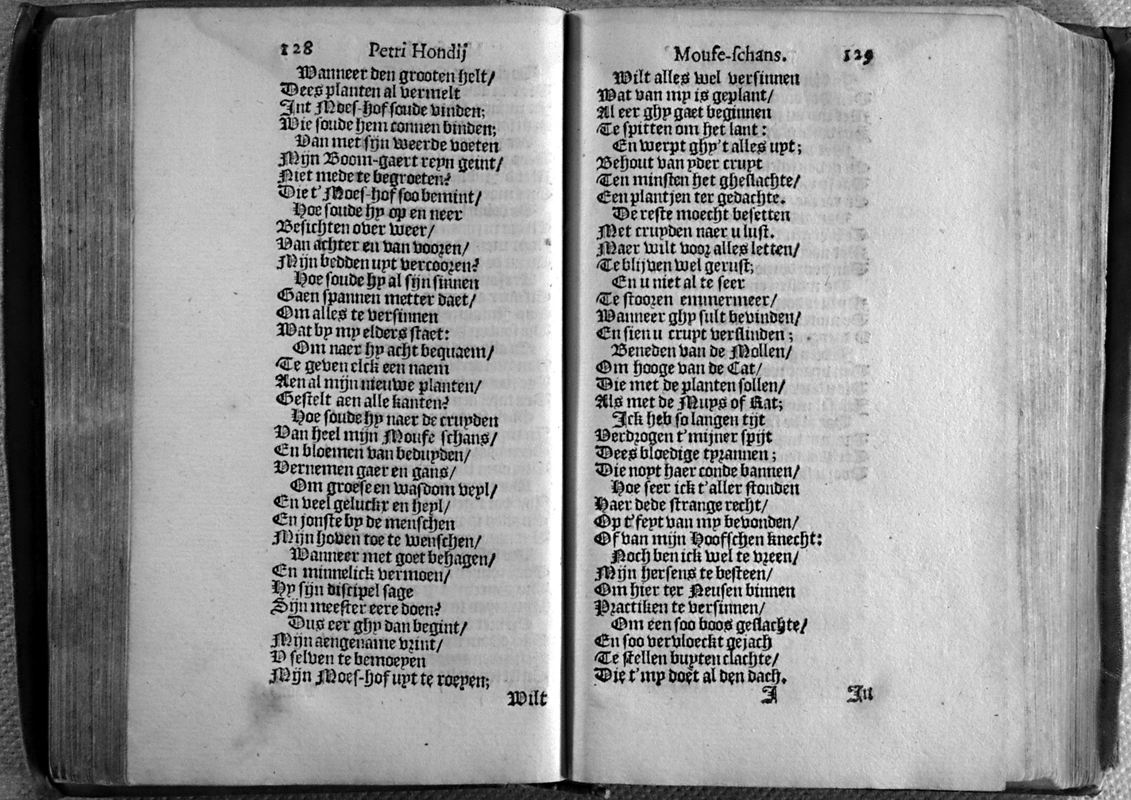 128 Petri Hondij
Wanneer den grooten helt/
Dees planten al vermelt
Int Moes-hof soude vinden;
Wie soude hem connen binden;
Van met sijn weerde voeten
Mijn Boom-gaert reyn geint/
Niet mede te begroeten?
Die t'Moes-hof soo bemint/
Hoe soude hy op en neer
Besichten over weer/
Van achter en van vooren/
Mijn bedden uyt vercooren?
Hoe soude hy al sijn sinnen
Gaen spannen metter daet/
Om alles te versinnen
Wat by my elders staet:
Om naer hy acht bequaem/
Te geven elck een naem
Aen al mijn nieuwe planten/
Gestelt aen alle kanten?
Hoe soude hy naer de cruyden
Van heel mijn Moufe schans/
En bloemen van beduyden/
Vernemen gaer en gans/
Om groese en wasdom veyl/
En veel geluckx en heyl/
En jonste by de menschen
Mijn hoven toe te wenschen/
Wanneer met goet behagen/
En minnelick vermoen/
Hy sijn discipel sage
Sijn meester eere doen?
Dus eer ghy dan begint/
Mijn aengename vrint/
V selven te bemoeyen
Mijn Moes-hof uyt te roeyen;
Wilt
Moufe-schans. 129
Wilt alles wel versinnen
Wat van my is geplant/
Al eer ghy gaet beginnen
Te spitten om het lant:
En werpt ghy't alles uyt;
Behout van yder cruyt
Ten minsten het gheslachte/
Een plantjen ter gedachte.
De reste moecht besetten
Met cruyden naer u lust.
Maer wilt voor alles letten/
Te blijven wel gerust;
En u niet al te seer
Te stooren emmermeer/
Wanneer ghy sult bevinden/
En sien u cruyt verslinden;
Beneden van de Mollen/
Om hooge van de Cat/
Die met de planten sollen/
Als met de Muys of Rat;
Ick heb so langen tijt
Verdrogen t'mijner spijt
Dees bloedige tyrannen;
Die noyt haer conde bannen/
Hoe seer ick t'aller stonden
Haer dede strange recht/
Op t'feyt van my bevonden/
Of van mijn Hoofschen knecht:
Noch ben ick wel te vreen/
Mijn hersens te besteen/
Om hier ter Neusen binnen
Practiken te versinnen/
Om een soo boos geslachte/
En soo vervloeckt gejach
Te stellen buyten clachte/
Die t'my doet al den dach.
I In